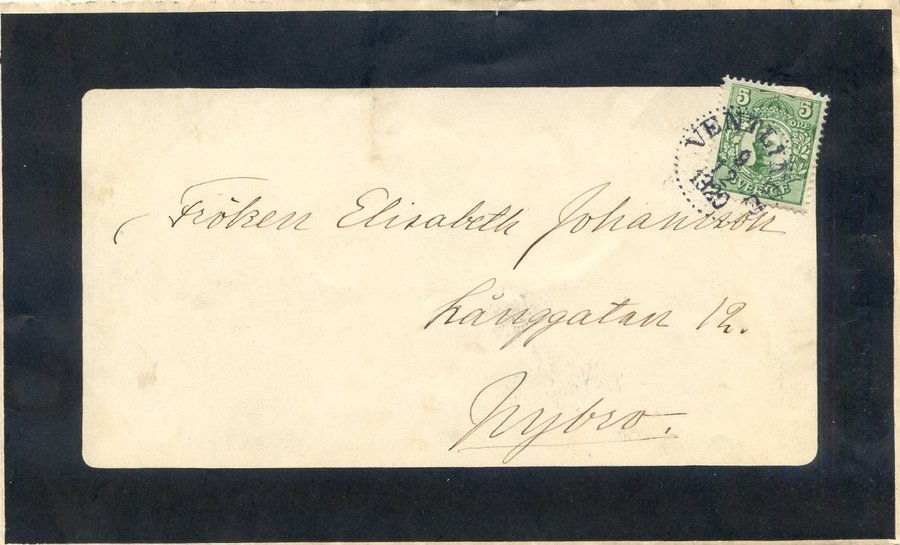 5 5
ÖRE
SVERIGE
9
2
1920
Fröken Elisabeth Johansson
Långgatan 12.
Nybro.